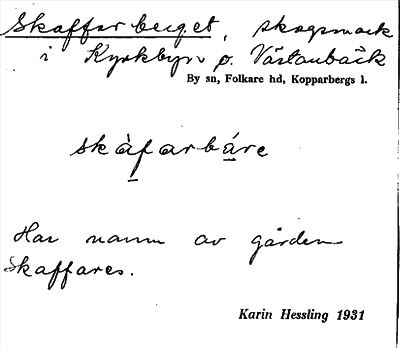 Skaffarberget, skogsmark
i Kyrkbyn o. Västanbäck
By sn, Folkare hd, Kopparbergs l.
skàfarbáre
Har namn av gården
Skaffares.
Karin Hessling 1931